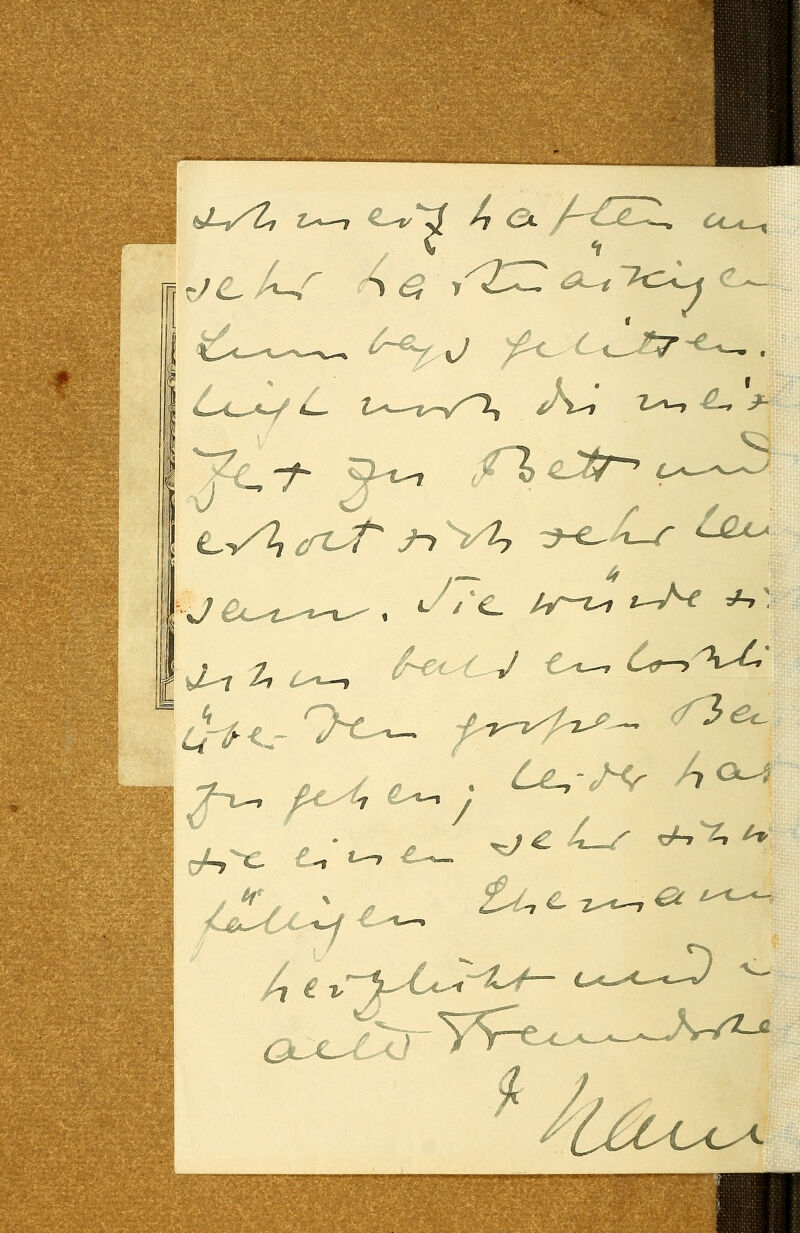 schmerzhaften un
sehr hartnäckigen
Lumbago gelitten.
liegt noch die meis
Zeit zu Bett und
erholt sich sehr lan
sam. Sie würde si
schon bald entschli
über den großen Ba
zu gehen; leider hat
sie einen sehr schw
fälligen Ehemann
herzlichst und
alter Freundsche